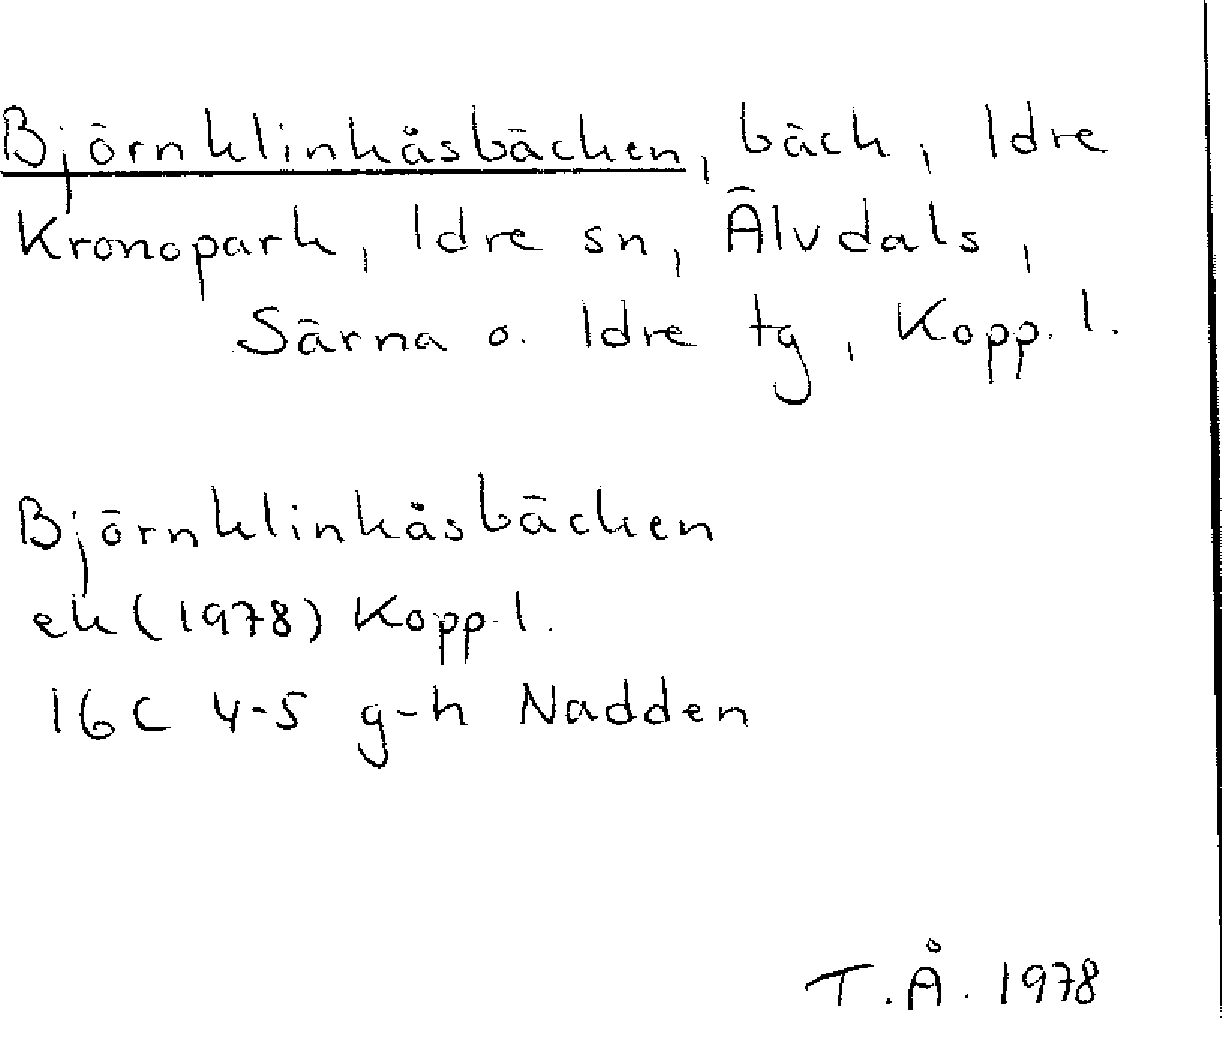 Björnklinkåsbäcken, bäck, Idre
Kronopark, Idre sn, Älvdals,
Särna o. Idre tg, Kopp. l.
Björnklinkåsbäcken
ek (1978) Kopp. l.
16C 4-5 g-h Nadden
T. Å. 1978